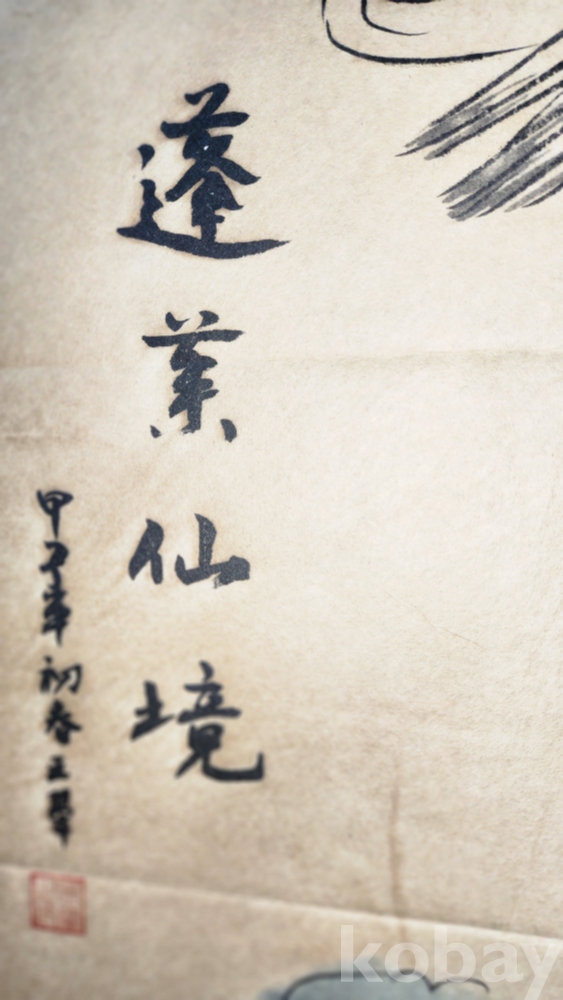 蓬莱仙境
甲子年初春王
kobay